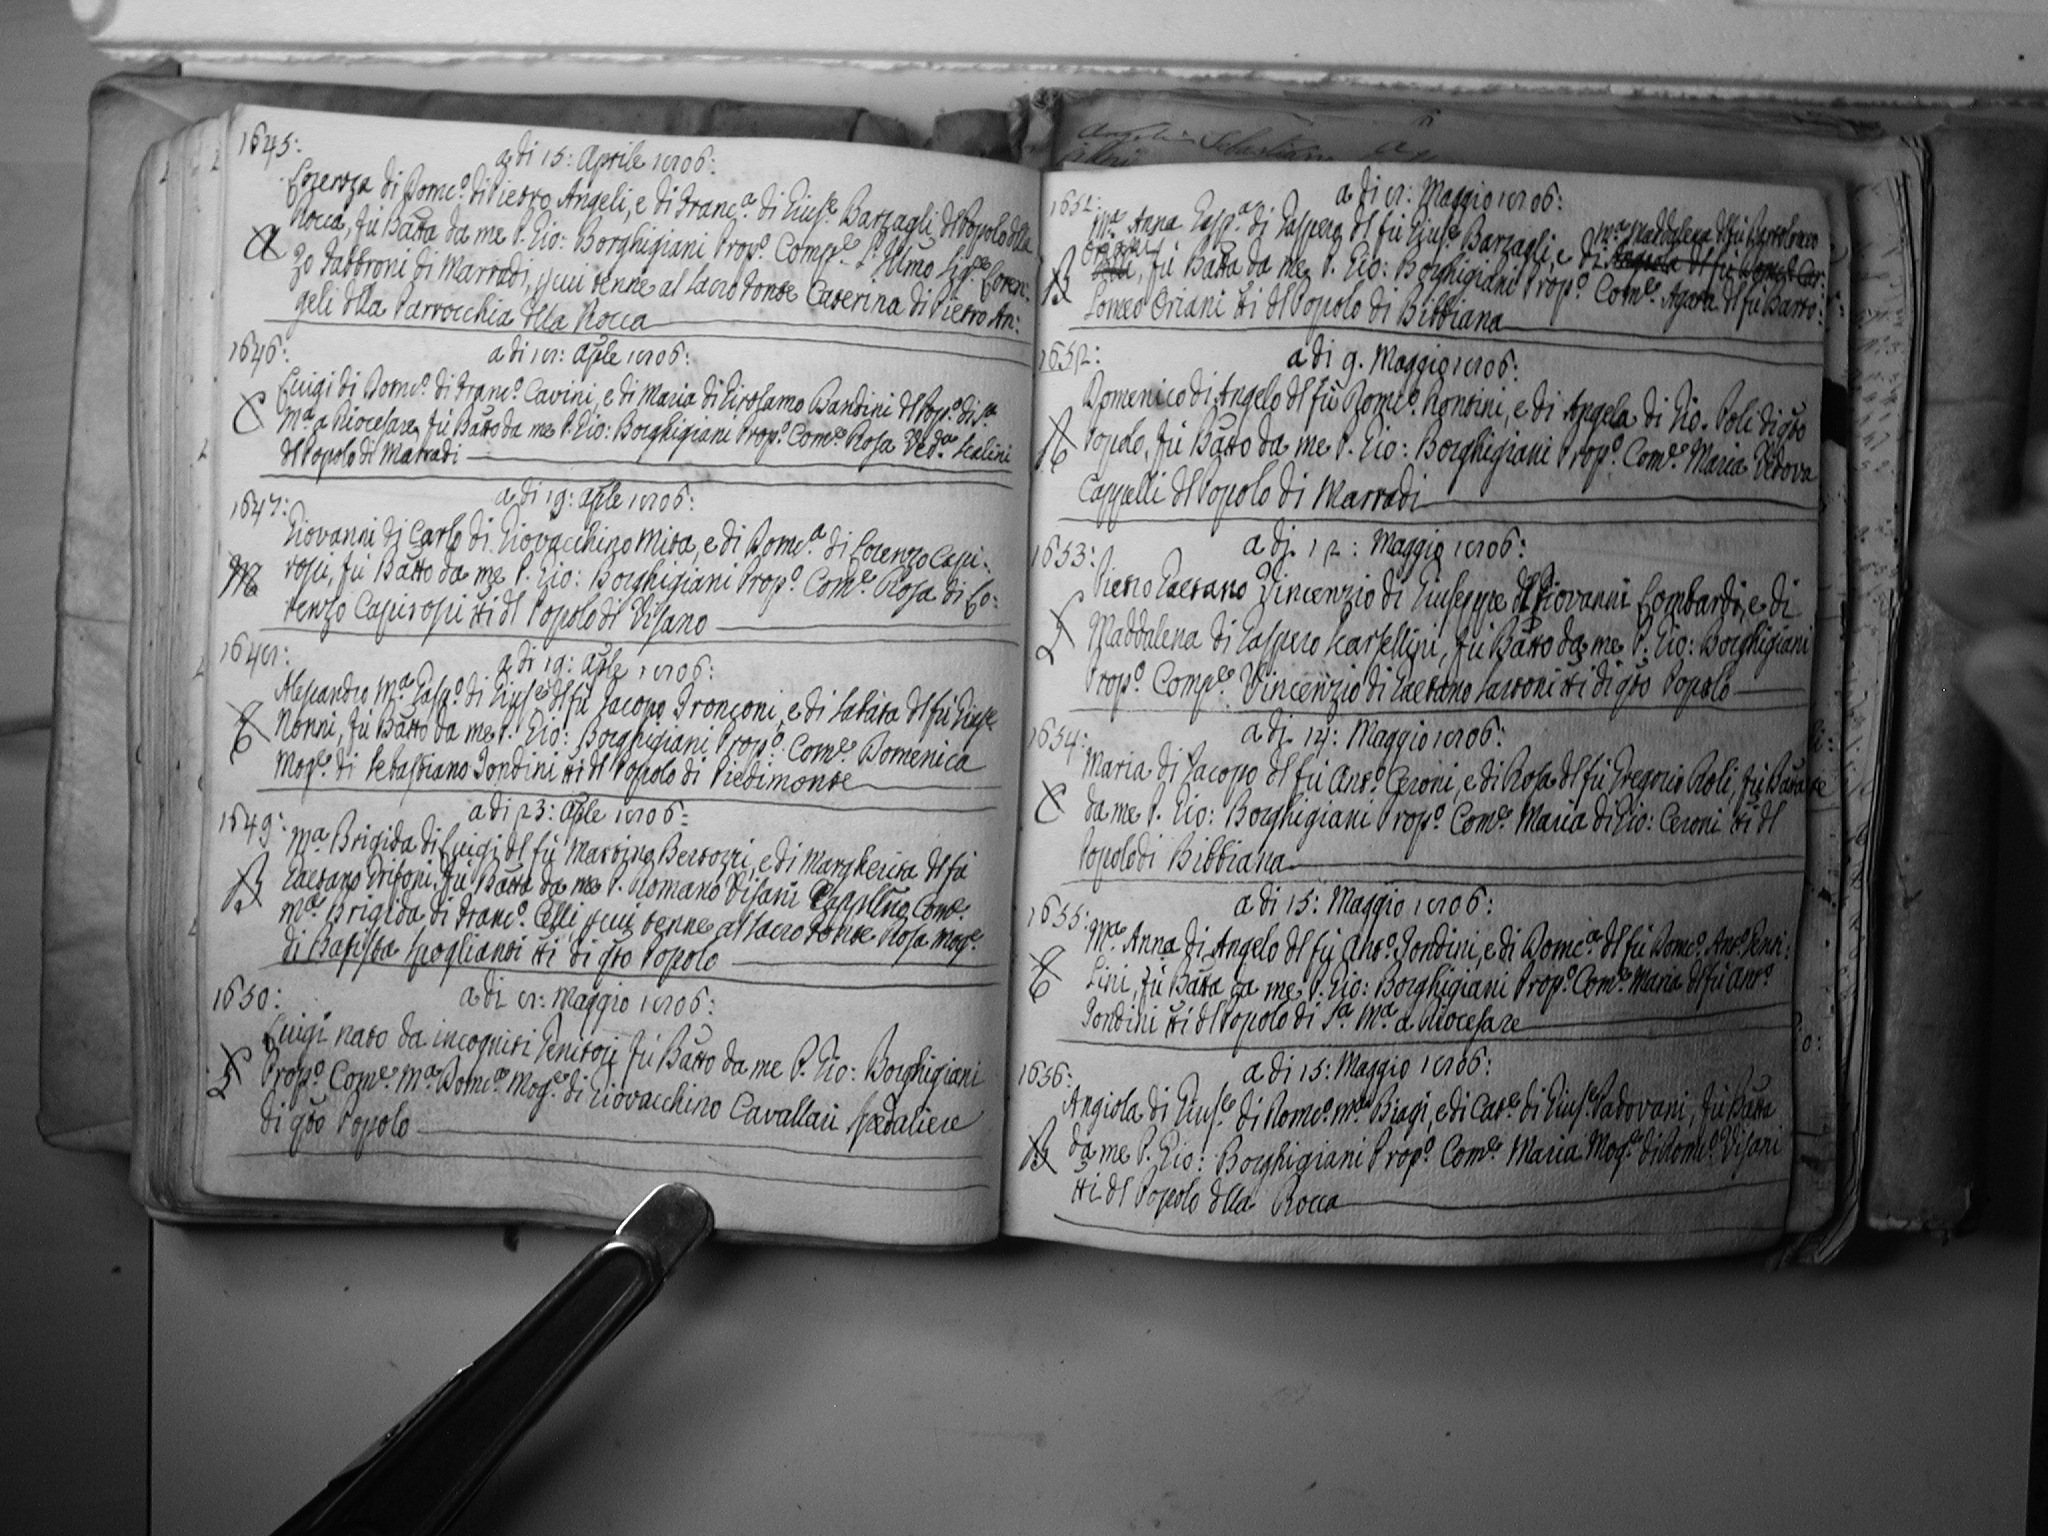 1645:
a di 15: Aprile 1806:
Lorenza di Domco. di Pietro Angeli, e di Franca. di Giuse. Barzagli dl Popolo dlla
Rocca, fù Batta da me P. Gio: Borghigiani Propo. Compe. l'Illmo Sige. Loren:
A
zo Fabbroni di Marradi, p cui tenne al sacro Fonte Caterina di Pietro An:
geli dlla Parrocchia dlla Rocca
1646:
a di 18: Aple 1806:
Luigi di Domco. di Franco. Cavini, e di Maria di Girolamo Bandini dl Popo. di Sa.
C
Ma. a Riocesare, fù Batto da me P. Gio: Borghigiani Propo. Come. Rosa Veda. Scalini
dl Popolo di Marradi
1647:
a di 19: Aple 1806:
Giovanni di Carlo di Giovacchino Mita, e di Domca. di Lorenzo Capi:
M
rosii, fù Batto da me P. Gio: Borghigiani Propo. Come. Rosa di Lo:
renzo Capirosii tti dl Popolo di Visano
1648:
a di 19: Aple 1806:
Alessandro Ma. Gaspo. di Giuse. dl fù Jacopo Fronconi, e di Sabata dl fù Giuse.
Nonni, fù Batto da me P. Gio: Borghigiani Propo. Come. Domenica
Moge. di Sebastiano Tondini tti dl Popolo di Piedimonte
1649:
a di 23: Aple 1806:
Ma. Brigida di Luigi dl fù Martino Bertozzi, e di Margherita dl fù
B
Gaetano Trifoni, fù Batta da me P. Romano Visani Cappllno Come.
Ma. Brigida di Franco. Celli, p cui tenne al sacro Fonte Rosa Moge.
di Batista Spoglianti tti di qto Popolo
1650:
a di 8: Maggio 1806:
Luigi nato da incogniti Genitori fù Batto da me P. Gio: Borghigiani
Propo. Come. Ma. Domca. Moge. di Giovacchino Cavallari Spedaliere
di qto Popolo
1651:
a di 8: Maggio 1806:
Ma. Maddalena dl fù Bartolomeo
Ma. Anna Gaspa. di Gaspero dl fù Giuse. Barzagli, e di
Oriani
B
, fù Batta da me P. Gio: Borghigiani Propo. Come. Agata dl fù Barto:
lomeo Oriani tti dl Popolo di Bibbiana
1652:
a di 9. Maggio 1806:
Domenico di Angelo dl fù Domco. Rontini, e di Angela di Gio. Poli di qto
R
Popolo, fù Batto da me P. Gio: Borghigiani Propo. Come. Maria Vedova
Cappelli dl Popolo di Marradi
1653:
a di 12: Maggio 1806:
Pietro Gaetano Vincenzio di Giuseppe dl Giovanni Lombardi, e di
L
Maddalena di Gaspero Scarsellini, fù Batto da me P. Gio: Borghigiani
Propo. Compe. Vincenzio di Gaetano Sartoni tti di qto Popolo
1654:
a di 14: Maggio 1806:
Maria di Jacopo dl fù Anto. Ceroni, e di Rosa dl fù Gregorio Poli, fù Batta
C
da me P. Gio: Borghigiani Propo. Come. Maria di Gio: Ceroni tti dl
Popolo di Bibbiana
1655:
a di 15: Maggio 1806:
Ma. Anna di Angelo dl fù Anto. Tondini, e di Domca. dl fù Domco. Anto. Penti:
lini, fù Batta da me P. Gio: Borghigiani Propo. Come. Maria dl fù Anto.
Tondini tti dl Popolo di Sa. Ma. a Riocesare
1656:
a di 15: Maggio 1806:
Angiola di Giuse. di Domco. Ma. Biagi, e di Cate. di Giuse. Padovani, fù Batta
B
da me P. Gio: Borghigiani Propo. Come. Maria Moge. di Domco. Visani
tti dl Popolo dlla Rocca